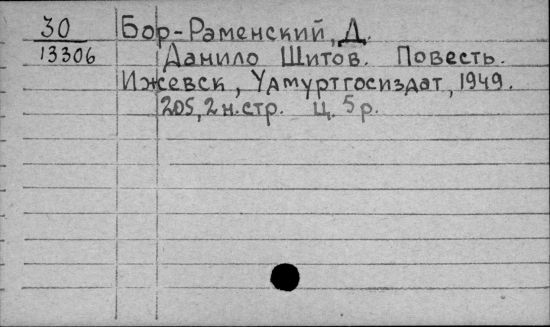 30 Бор-Раменский, Д.
13306 Данило Шитов. Повесть.
Ижевск, Удмуртгосиздат, 1949.
205, 2 н.стр. Ц. 5 р.